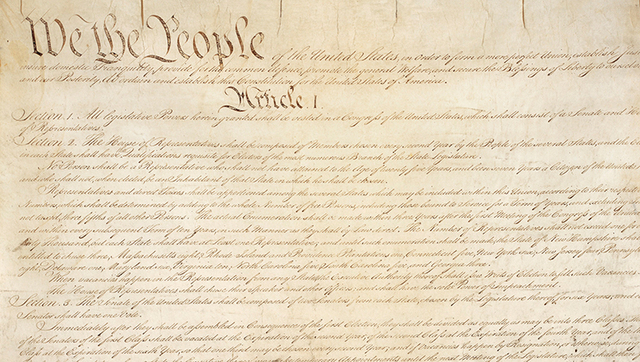 We the People of the United States, in Order to form a more perfect Union, establish
insure domestic Tranquility, provide for the common defence, promote the general Welfare, and secure the Blessings of Liberty to
and our Posterity, do ordain and establish this Constitution for the United States of America.
Article. I.
Section. 1. All legislative Powers herein granted shall be vested in a Congress of the United States, which shall consist of a Senate and
of Representatives.
Section. 2. The House of Representatives shall be composed of Members chosen every second Year by the People of the several States, and the
in each State shall have the Qualifications requisite for Electors of the most numerous Branch of the State Legislature.
No Person shall be a Representative who shall not have attained to the Age of twenty five Years, and been seven Years a Citizen of the United
and who shall not, when elected, be an Inhabitant of that State in which he shall be chosen.
Representatives and direct Taxes shall be apportioned among the several States which may be included within this Union, according to their respective
Numbers, which shall be determined by adding to the whole Number of free Persons, including those bound to Service for a Term of Years, and excluding
not taxed, three fifths of all other Persons. The actual Enumeration shall be made within three Years after the first Meeting of the Congress of the United
and within every subsequent Term of ten Years, in such Manner as they shall by Law direct. The Number of Representatives shall not exceed one for
thirty Thousand, but each State shall have at Least one Representative; and until such enumeration shall be made, the State of New Hampshire shall
entitled to chuse three, Massachusetts eight, Rhode Island and Providence Plantations one, Connecticut five, New York six, New Jersey four, Pennsylvania
eight, Delaware one, Maryland six, Virginia ten, North Carolina five, South Carolina five, and Georgia three.
When vacancies happen in the Representation from any State, the Executive Authority thereof shall issue Writs of Election to fill such Vacancies.
The House of Representatives shall chuse their Speaker and other Officers; and shall have the sole Power of Impeachment.
Section. 3. The Senate of the United States shall be composed of two Senators from each State, chosen by the Legislature thereof, for six Years; and
Senator shall have one Vote.
Immediately after they shall be assembled in Consequence of the first Election, they shall be divided as equally as may be into three Classes.
of the Senators of the first Class shall be vacated at the Expiration of the second Year, of the second Class at the Expiration of the fourth Year, and of the
Class at the Expiration of the sixth Year, so that one third may be chosen every second Year; and if Vacancies happen by Resignation, or otherwise, during